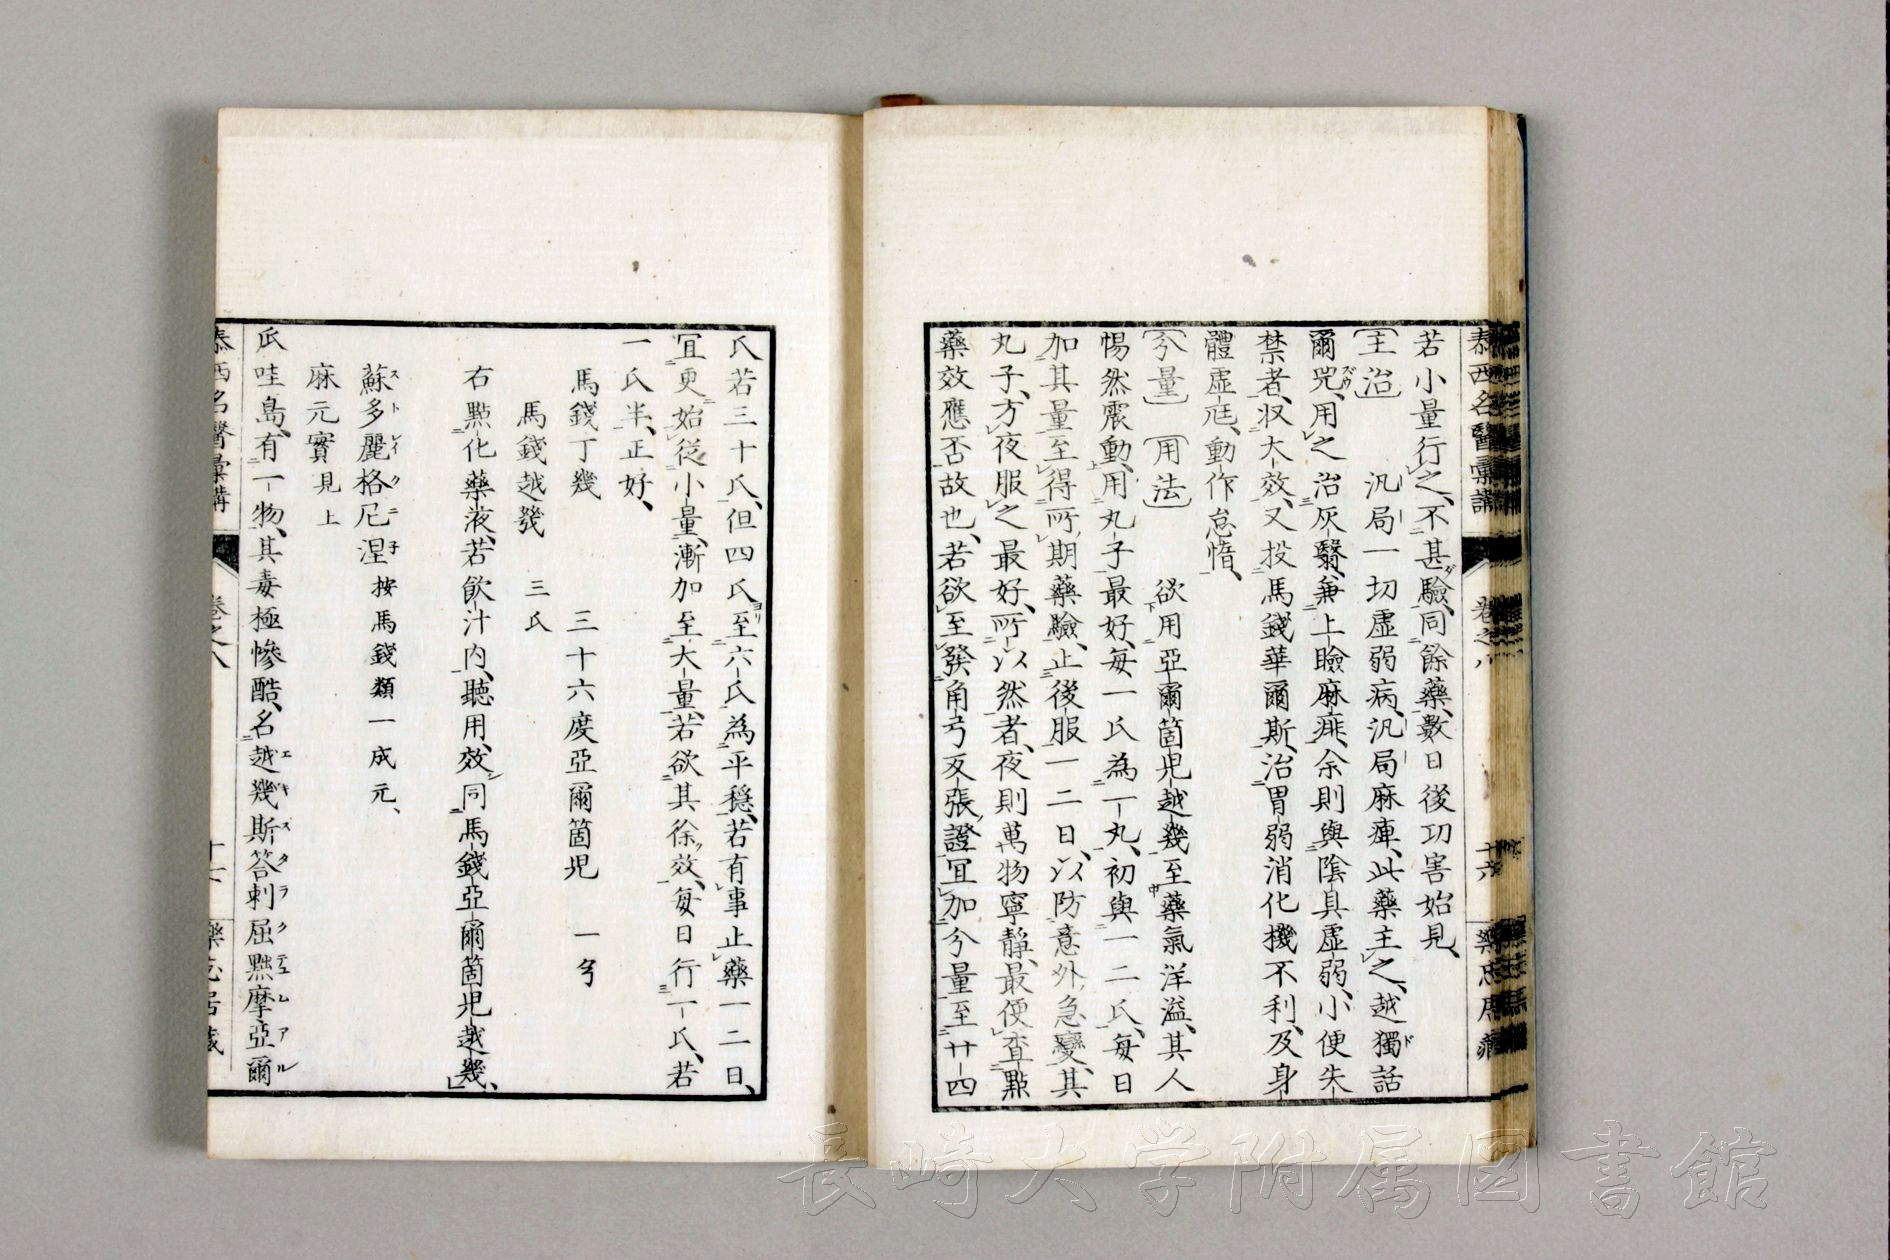 泰西名醫彙講 卷之八 十六
若小量行之、不甚驗、同餘藥、數日後功害始見、
〔主治〕 汎局一切虚弱病、汎局麻痺、此藥主之、越獨話
爾兕、用之治灰翳、兼上瞼麻痺、余則與陰具虚弱、小便失
禁者、収大效、又投馬錢華爾斯、治胃弱消化機不利、及身
體虚尫、動作怠惰、
〔分量〕〔用法〕 欲用亞爾箇兕越幾至藥氣洋溢、其人
惕然震動、用丸子最好、每一氏為一丸、初與一二氏、每日
加其量至得所期藥驗、止後服一二日、以防意外急變、其
丸子、方夜服之最好、所以然者、夜則萬物寧靜、最便查點
藥效應否故也、若欲至發角弓反張證、宜加分量至廿四
氏若三十氏、但四氏至六氏為平穩、若有事止藥一二日、
宜更始從小量、漸加至大量、若欲其徐效、每日行一氏、若
一氏半、正好、
馬錢丁幾 三十六度亞爾箇兕 一弓
馬錢越幾 三氏
右點化藥液、若飲汁内、聽用、效同馬錢亞爾箇兕越幾、
蘇多麗格尼涅 按馬錢類一成元、
麻元實見上
瓜哇島、有一物、其毒極慘酷、名越幾斯答剌屈黙摩、亞爾
泰西名醫彙講 卷之八